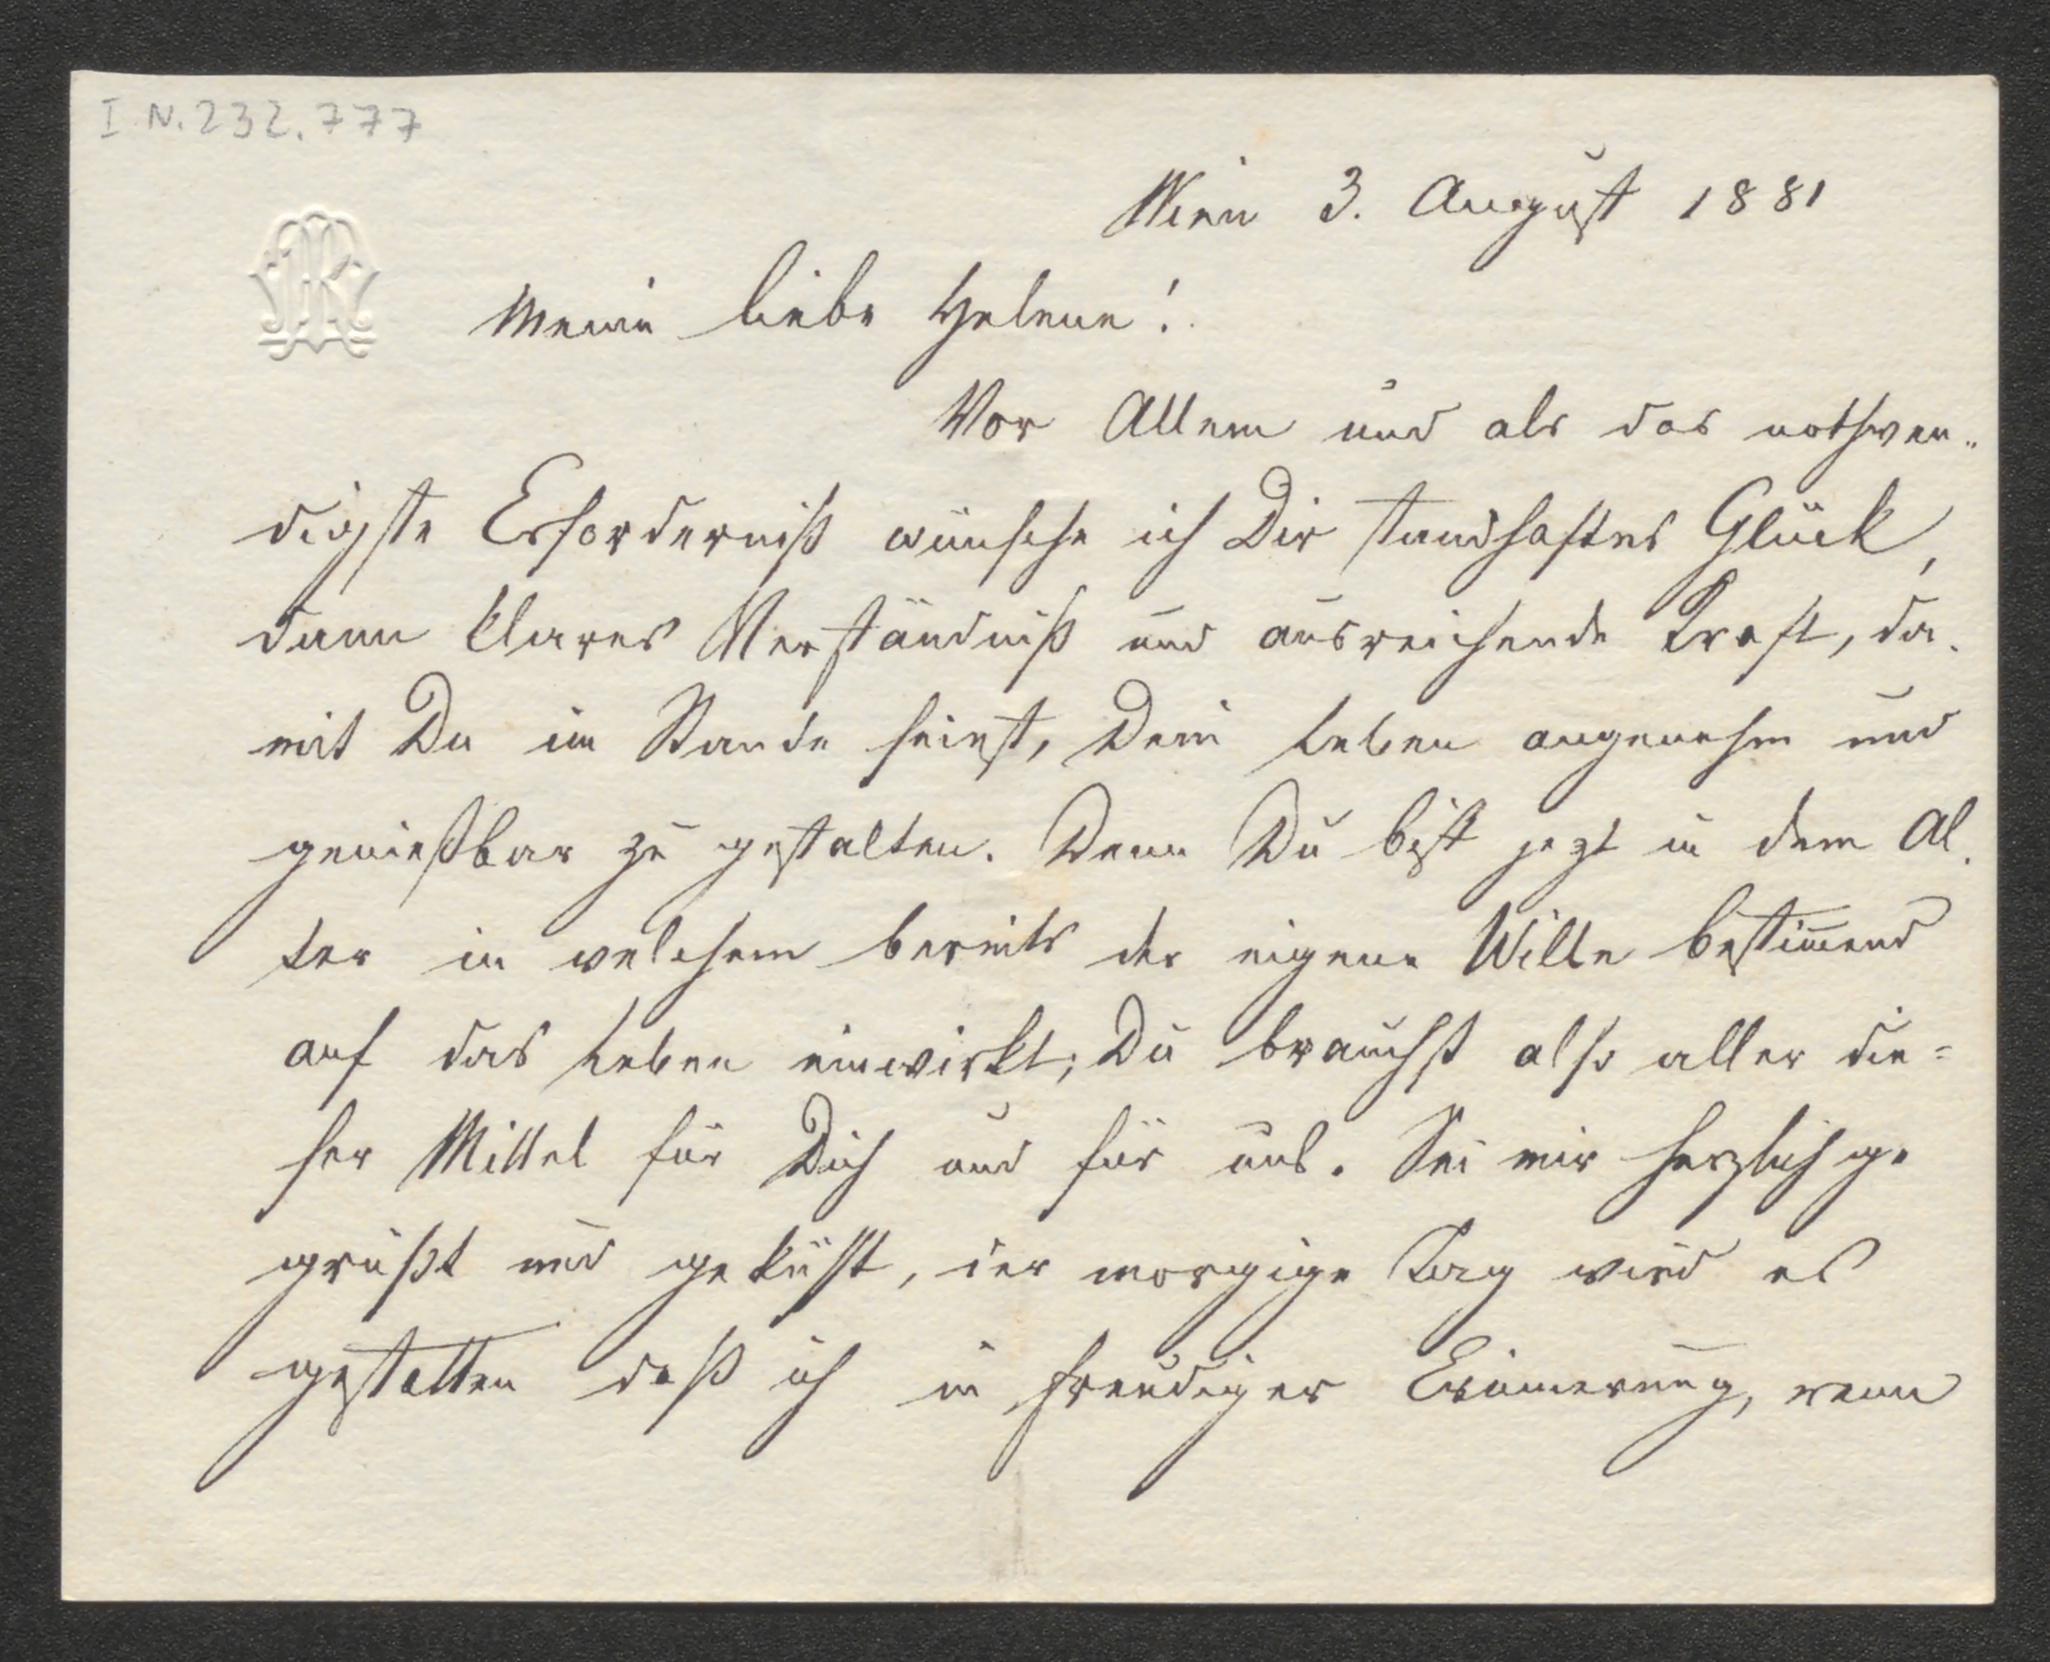 I. N. 232.777
Wien 3. August 1881
Meine liebe Helene!
Vor Allem und als das nothwen-
digste Erforderniß wünsche ich Dir standhaftes Glück,
dann klares Verständniß und ausreichende Kraft, da-
mit Du im Stande seiest, Dein Leben angenehm und
genießbar zu gestalten. Denn Du bist jezt in dem Al-
ter in welchem bereits der eigene Wille bestimmend
auf das Leben einwirkt; Du brauchst also aller die=
ser Mittel für Dich und für uns. Sei mir herzlich ge
grüßt und geküßt, der morgige Tag wird es
gestatten daß ich in freudiger Erinnerung, wenn